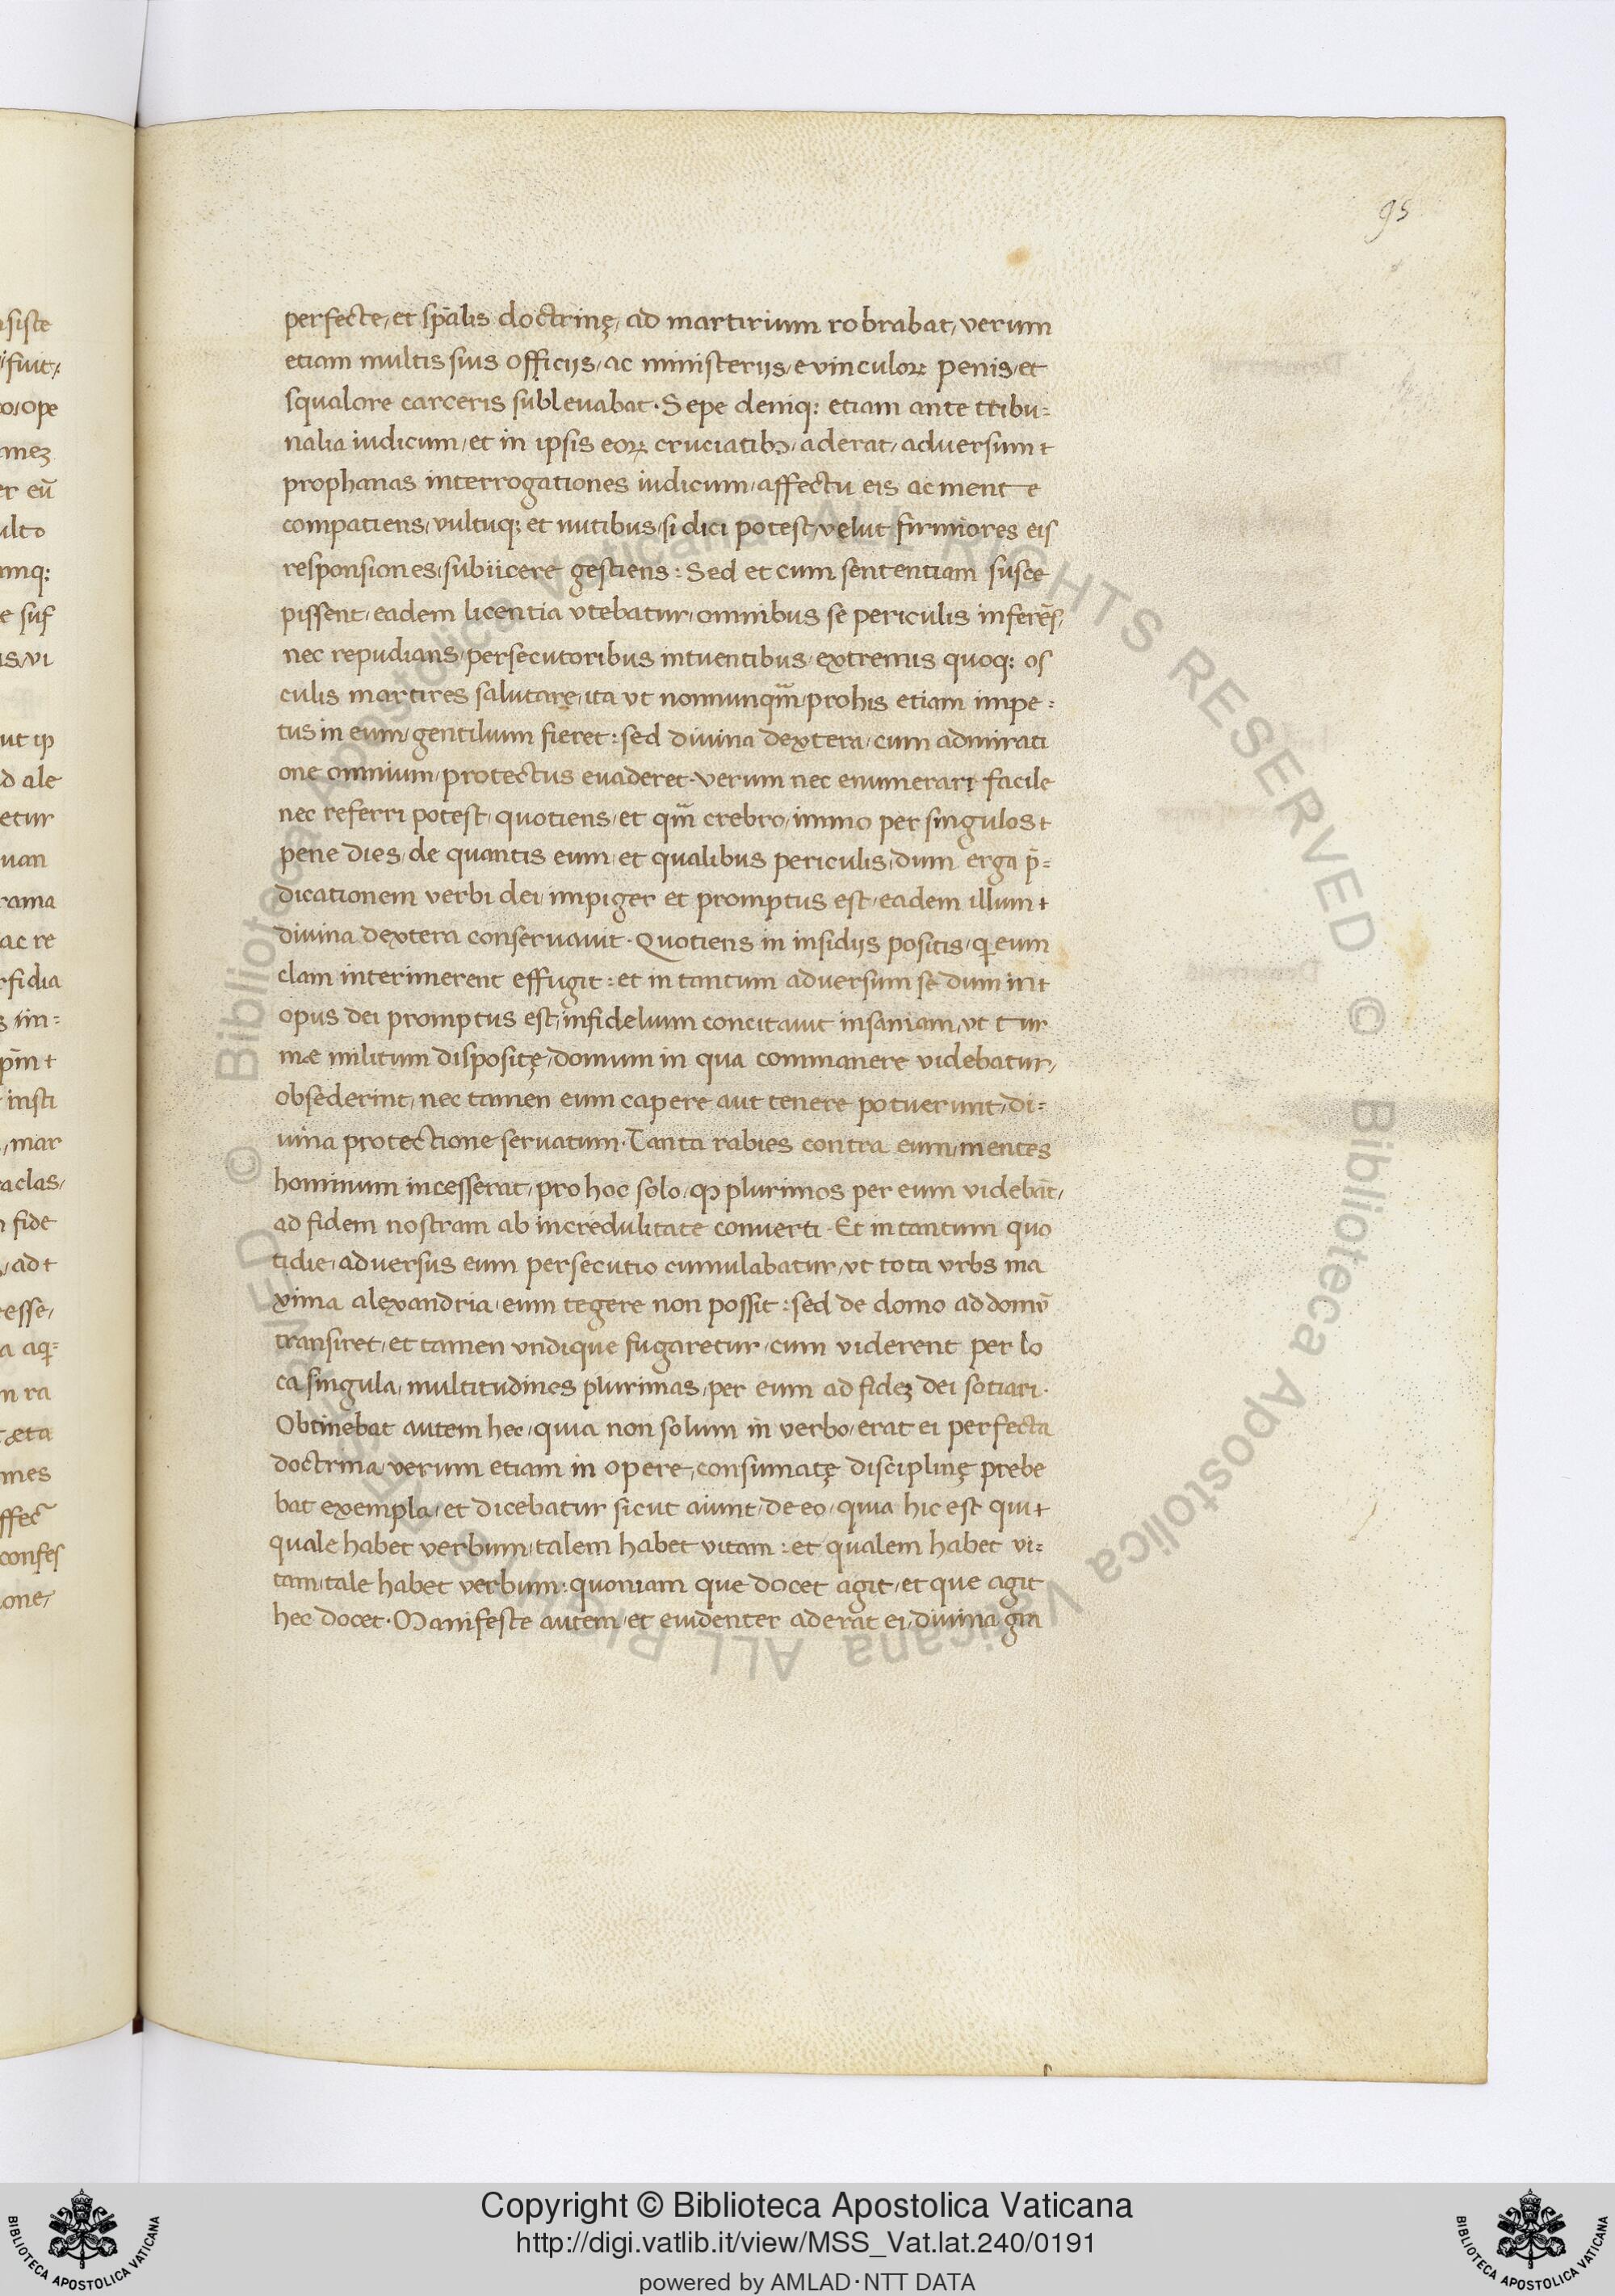 95
perfecte, et sp̄alis doctrinę, ad martirium robrabat, verum
etiam multis suis officijs, ac ministerijs, e vinculoꝝ penis, et
squalore carceris sublevabat. Sepe deniq; etiam ante tribu=
nalia iudicum, et in ipsis eoꝝ cruciatibꝫ, aderat, adversum
prophanas interrogationes iudicum, affectu eis ac mente
compatiens, vultuq; et nutibus, si dici potest, velut firmiores eis
responsiones, subiicere gestiens: Sed et cum sententiam susce
pissent, eadem licentia vtebatur, omnibus se periculis inferēs,
nec repudians, persecutoribus intuentibus, extremis quoq; os
culis martires salutare, ita vt nonnunqm̄, prohis etiam impe=
tus in eum, gentilium fieret: sed divina dextera, cum admirati
one omnium, protectus evaderet. verum nec enumerari facile
nec referri potest, quotiens, et qm̄ crebro, immo per singulos
pene dies, de quantis eum, et qualibus periculis, dum erga p̄=
dicationem verbi dei, impiger et promptus est, eadem illum
divina dextera conservavit. Quotiens in insidijs positis, q̄ eum
clam interimerent effugit: et in tantum adversum se dum in
opus dei promptus est, infidelium concitavit insaniam, vt tur
mæ militum dispositę, domum in qua commanere videbatur,
obsederint, nec tamen eum capere aut tenere potuerunt, di=
uina protectione servatum. Tanta rabies contra eum, mentes
hominum incesserat, pro hoc solo, ꝙ plurimos per eum videbāt,
ad fidem nostram ab incredulitate converti. Et in tantum quo
tidie, adversus eum persecutio cumulabatur, vt tota vrbs ma
xima alexandria, eum tegere non possit: sed de domo ad domū
transiret, et tamen vndique fugaretur, cum viderent per lo
ca singula, multitudines plurimas, per eum ad fideꝫ dei sotiari.
Obtinebat autem hec, quia non solum in verbo, erat ei perfecta
doctrina, verum etiam in opere, consumatę disciplinę prebe
bat exempla, et dicebatur sicut aiunt, de eo, quia hic est qui
quale habet verbum, talem habet vitam: et qualem habet vi=
tam, tale habet verbum: quoniam que docet agit, et que agit
hec docet. Manifeste autem, et evidenter aderat ei, divina gr̄a
Copyright © Biblioteca Apostolica Vaticana
http://digi.vatlib.it/view/MSS_Vat.lat.240/0191
powered by AMLAD·NTT DATA